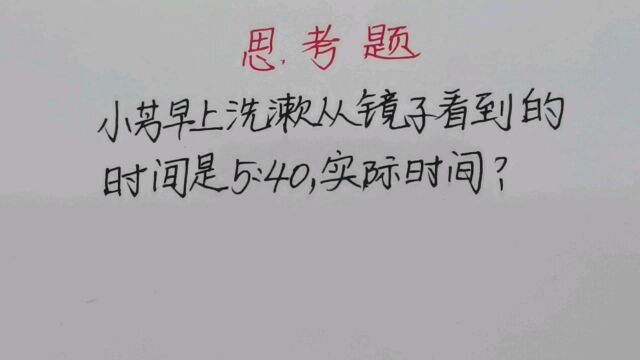 思考题
小芮早上洗漱从镜子看到的
时间是5:40,实际时间?